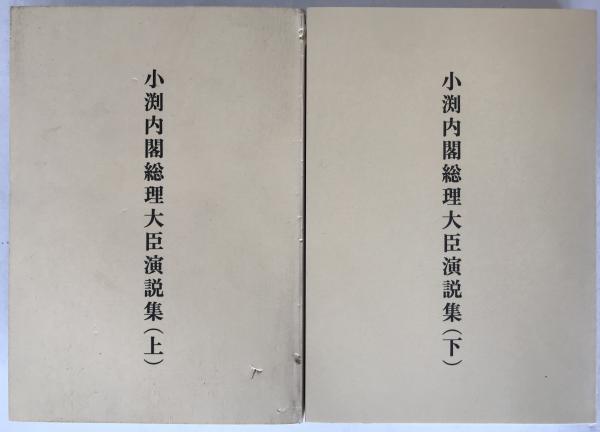 小渕内閣総理大臣演説集（上）
小渕内閣総理大臣演説集（下）